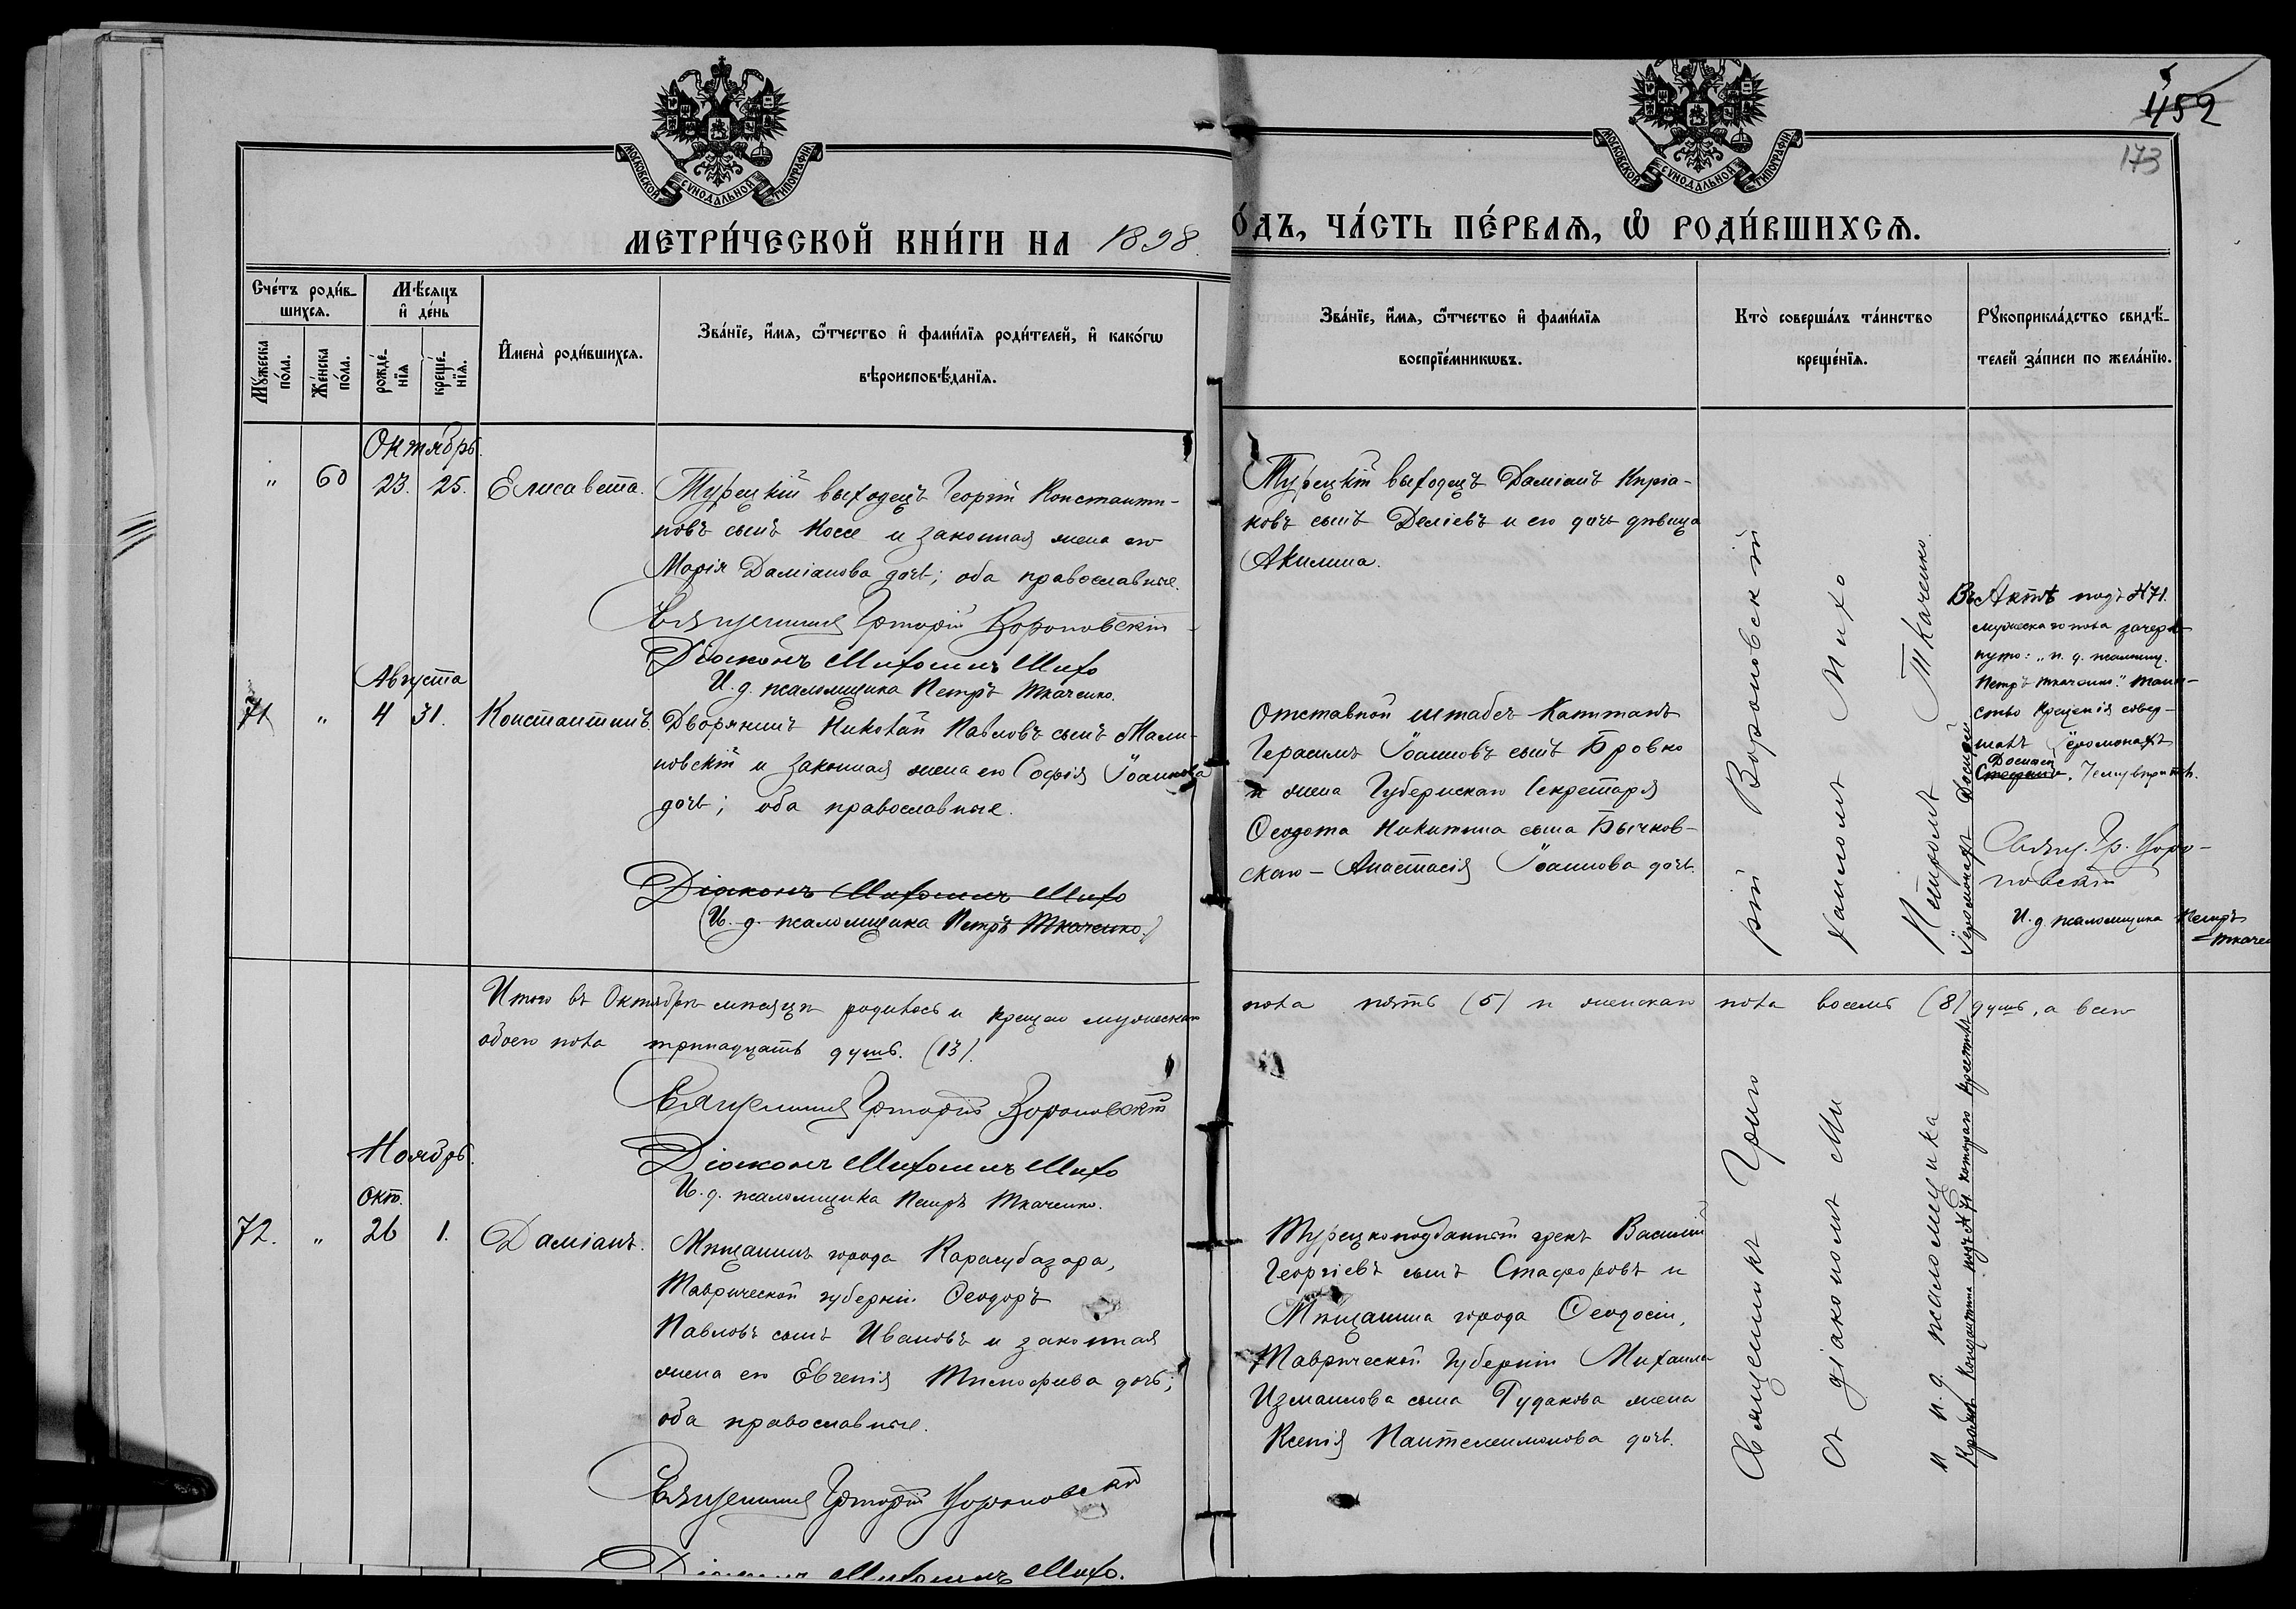 452
173
МОСКОВСКОЙ СѴНОДАЛЬНОЙ ТИПОГРАФІИ
МОСКОВСКОЙ СѴНОДАЛЬНОЙ ТИПОГРАФІИ
МЕТРИ́ЧЕСКОЙ КНИ́ГИ НА 1898.
О́ДЪ, ЧА́СТЬ ПЕ́РВАѦ, Ѽ РОДИ́ВШИХСѦ.
Счéтъ роди́в-
шихсѧ.
Мѣ́сѧцъ
и҆ дéнь
Мꙋ́жеска
по́ла.
Же́нска
по́ла.
рожде́-
нїѧ
креще́-
нїѧ.
И҆мена̀ роди́вшихсѧ.
Зва́нїе, и҆́мѧ, ѻ҆́тчество и҆ фами́лїѧ роди́телей, и҆ како́гѡ
вѣроисповѣ́данїѧ.
Зва́нїе, и҆́мѧ, ѻ҆́тчество и҆ фами́лїѧ
воспрїе́мникѡвъ.
Кто̀ соверша́лъ та́инство
креще́нїѧ.
Рꙋкоприкла́дство свидѣ́-
телей за́писи по жела́нїю.
Октябрь.
" 60 23. 25. Елисавета.
Турецкій выходецъ Георгій Константи-
новъ сынъ Коссе и законная жена его
Марія Даміанова дочь; оба православные.
Священникъ Григорій Вороновскій
Діаконъ Митоимъ Михо
И. д. псаломщика Петръ Ткаченко.
Турецкій выходецъ Даміанъ Киріа-
ковъ сынъ Деліевъ и его дочь дѣвица
Акилина.
Августа
71 " 4 31. Константинъ.
Дворянинъ Николай Павловъ сынъ Мали-
новскій и законная жена его Софія Іоаннова
дочь; оба православные.
Діаконъ Митоимъ Михо
(И. д. псаломщика Петръ Ткаченко.)
Отставной штабсъ Капитанъ
Герасимъ Іоанновъ сынъ Бровко
и жена Губернскаго Секретаря
Ѳеодота Никитина сына Бычков-
скаго – Анастасія Іоаннова дочь.
Въ Актѣ подъ №71.
мужескаго пола зачерк-
нуто: "и. д. псаломщ.
Петръ Ткаченко." Таин-
ство Крещенія совер-
шалъ Іеромонахъ
Досиѳей
Священ. Гр. Воро-
новскій
И. д. псаломщика Петръ
Ткачен
Итого въ Октябрѣ мѣсяцѣ родилось и крещено мужескаго
пола пять (5) и женскаго пола восемь (8) душъ, а всего
обоего пола тринадцать душъ. (13).
Священникъ Григорій Вороновскій
Діаконъ Митоимъ Михо
И. д. псаломщика Петръ Ткаченко.
Ноябрь.
Окт.
72. " 26 1. Даміанъ.
Мѣщанинъ города Карасубазара,
Таврической губерніи Ѳеодоръ
Павловъ сынъ Ивановъ и законная
жена его Евгенія Тимофеева дочь;
оба православные.
Священникъ Григорій Вороновскій
Діаконъ Митоимъ Михо.
Турецкоподданный грекъ Василій
Георгіевъ сынъ Стафоровъ и
Мѣщанина города Ѳеодосіи,
Таврической Губерніи Михаила
Измаилова сына Гудакова жена
Ксенія Пантелеимонова дочь.
Священникъ Григорій Вороновскій
съ діакономъ Митоимомъ Михо
и и. д. псаломщика Петромъ Ткаченко.
Константина подъ №71 котораго крестилъ Іеромонахъ Досиѳей